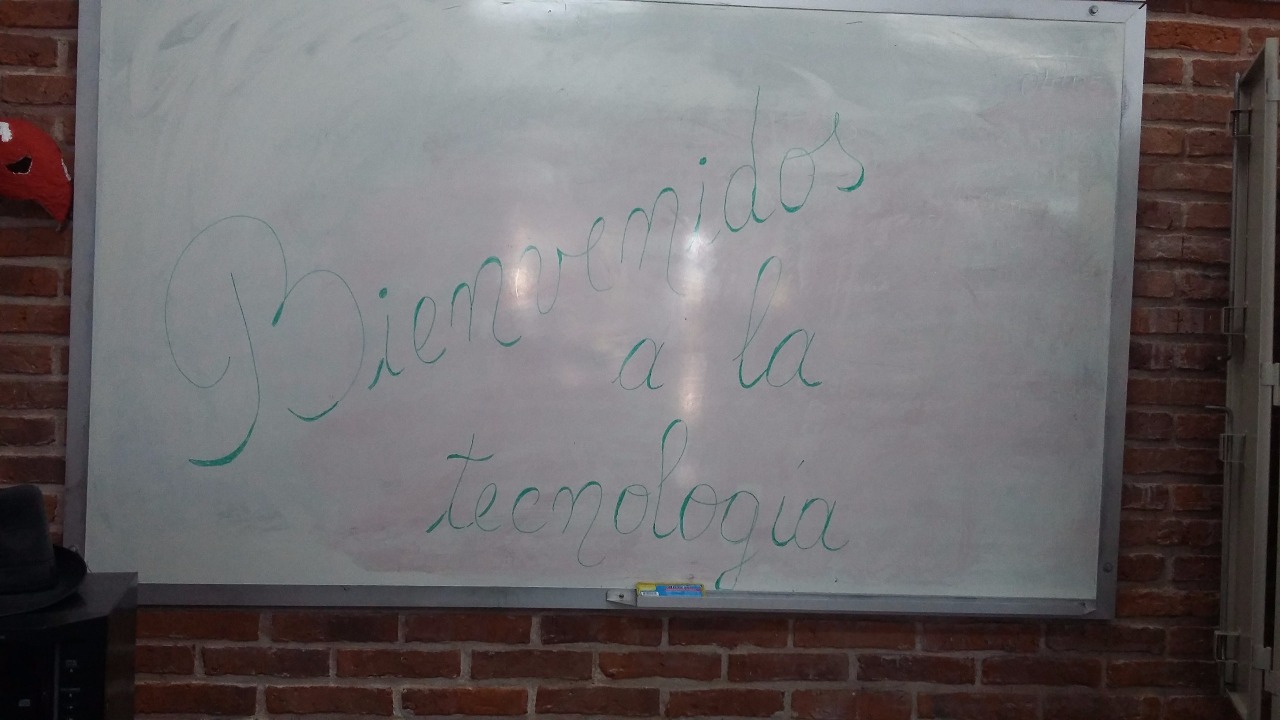 Bienvenidos
a la
tecnología